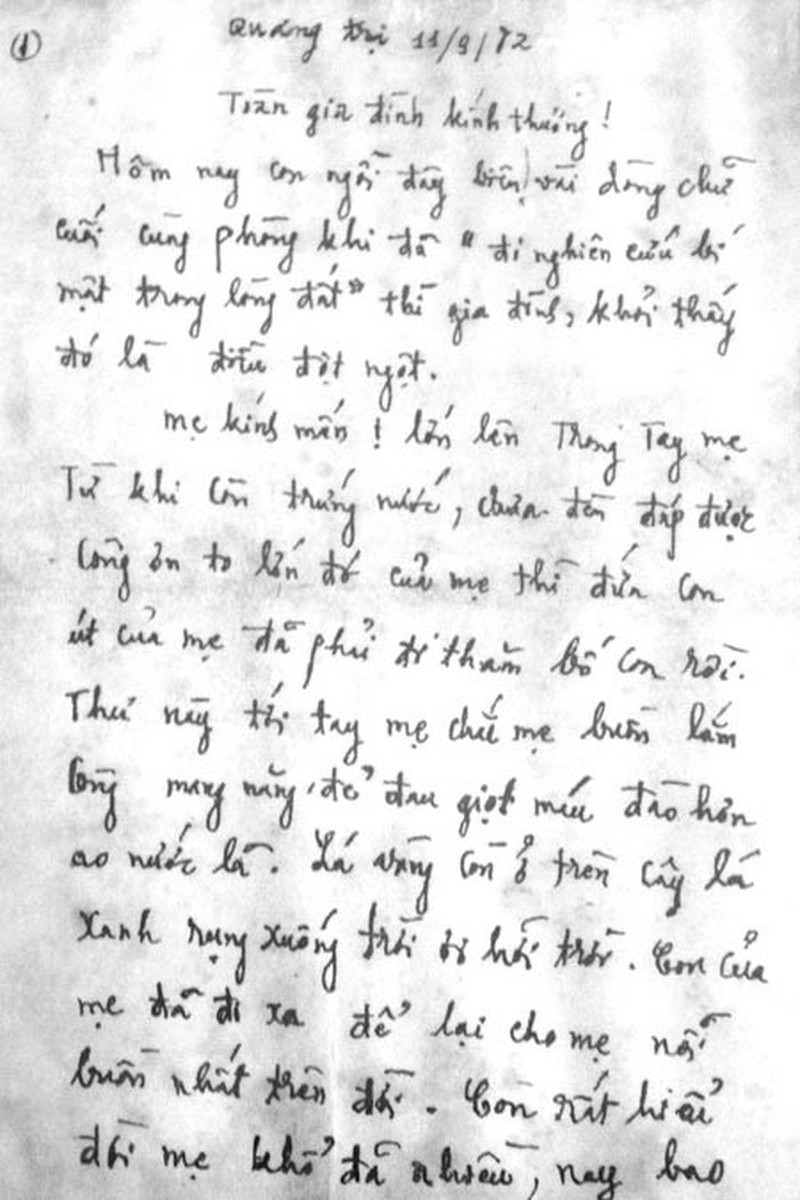 ①
Quảng trị 11/9/72
Toàn gia đình kính thương!
Hôm nay con ngồi đây biên vài dòng chữ
cuối cùng phòng khi đã "đi nghiên cứu bí
mật trong lòng đất" thì gia đình, khỏi thấy
đó là điều đột ngột.
mẹ kính mến! lớn lên Trong Tay mẹ
Từ khi còn trứng nước, chưa đền đáp được
Công ơn to lớn đó của mẹ thì đứa con
út của mẹ đã phải đi thăm bố con rồi.
Thư này tới tay mẹ chắc mẹ buồn lắm
Công mang nặng, đẻ đau giọt máu đào hơn
ao nước lã. Lá vàng còn ở trên cây lá
xanh rụng xuống trời ơi hỡi trời. Con của
mẹ đã đi xa để lại cho mẹ nỗi
buồn nhất trên đời. Con rất hiểu
đời mẹ khổ đã nhiều, nay bao